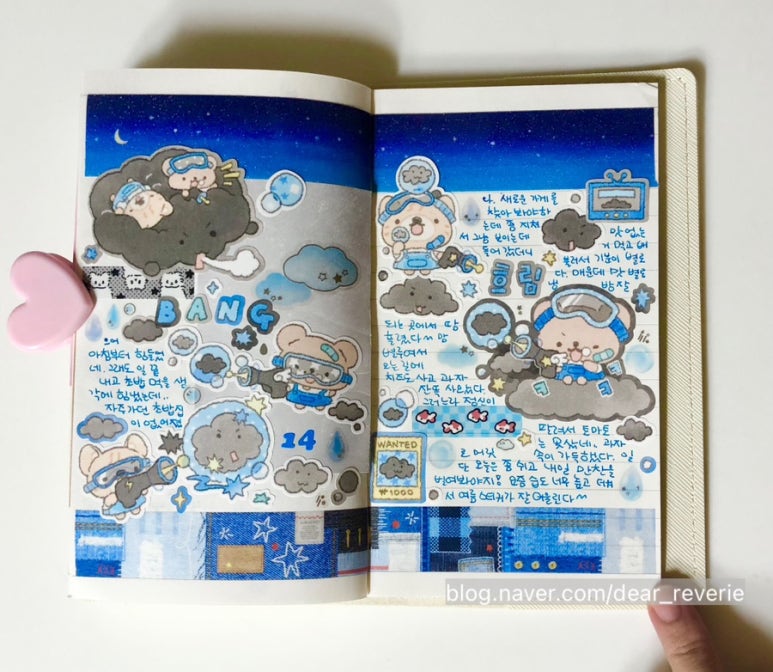 BANG
아침부터 힘들었
네. 그래도 일 끝
내고 초밥 먹을 생
각에 힘냈는데..
자주가던 초밥집
이 없어졌
14
나. 새로운 가게를
찾아 봐야하
는데 좀 지쳐
서 그냥 보이는데
들어 갔더니
맛 없는
거 먹고 배
불러서 기분이 별로
다. 매운데 맛 별로
흐림
되는 곳에서 땀
흘렸다ㅠ 맘
오는 길에
치즈도 사고 과자
잔뜩 사왔다
그러느라 정신이
팔려서 토마토
는 못샀네. 과자
로 머릿
속이 가득했다. 일
단 오늘은 좀 쉬고 내일 만찬을
벌여봐야지! 요즘 습도 너무 높고 더워
서 여름스티커가 잘 어울린다~
WANTED
₩1000
blog.naver.com/dear_reverie